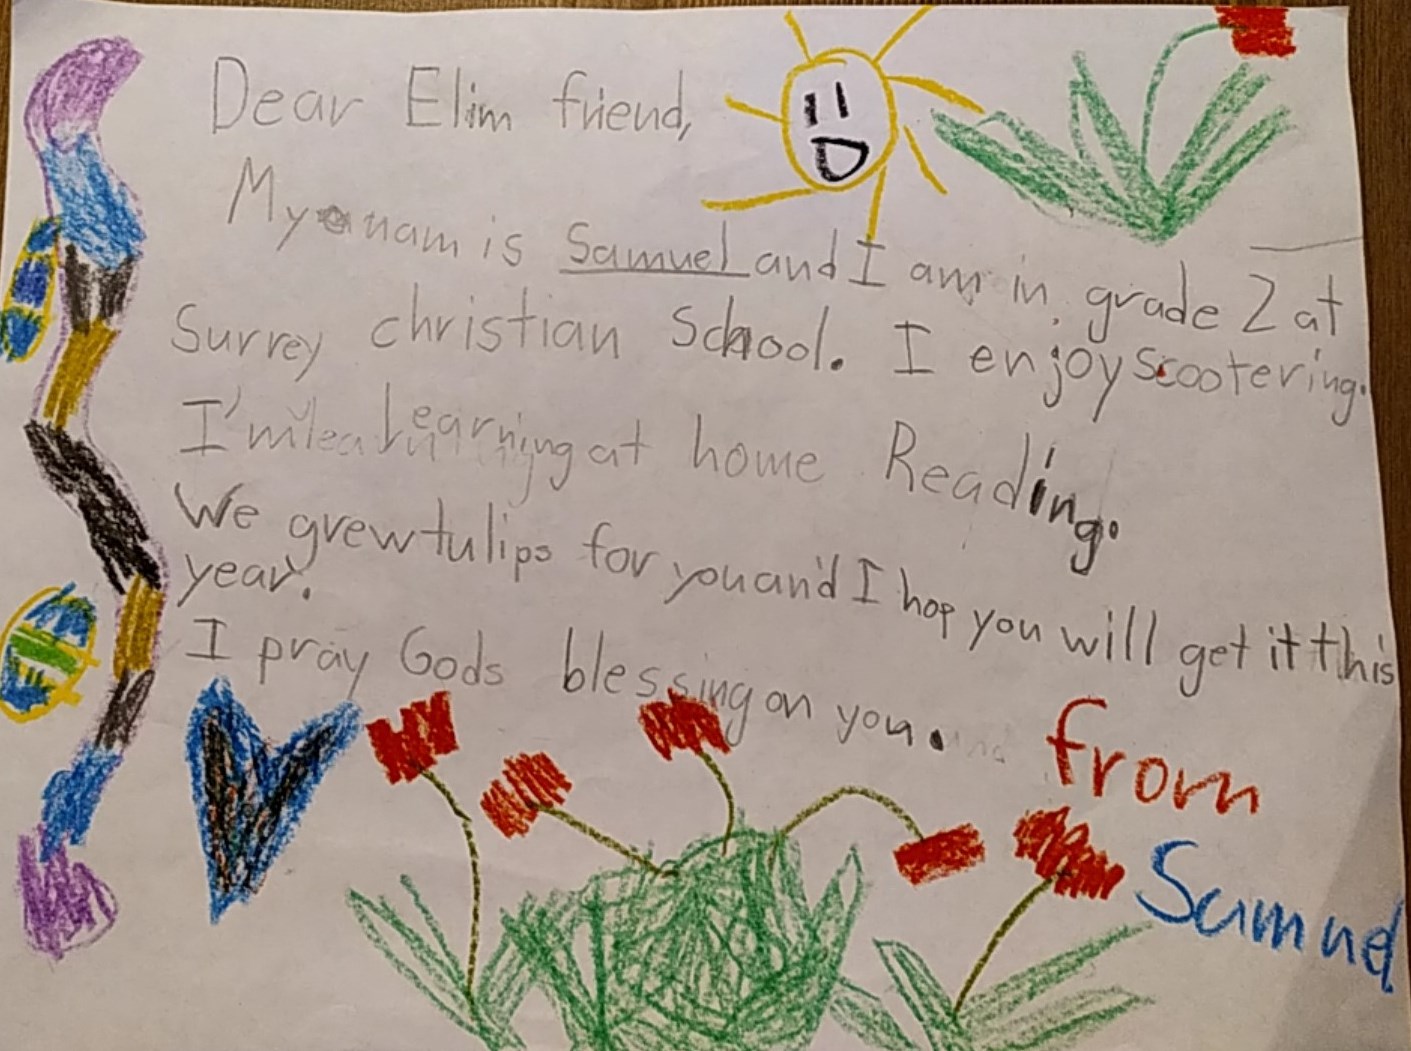 Dear Elim friend,
My nam is Samuel and I am in grade 2 at
Surrey christian School. I enjoy scootering.
I'm learning at home Reading.
We grew tulips for you and I hop you will get it this
year.
I pray Gods blessing on you.
from
Samuel